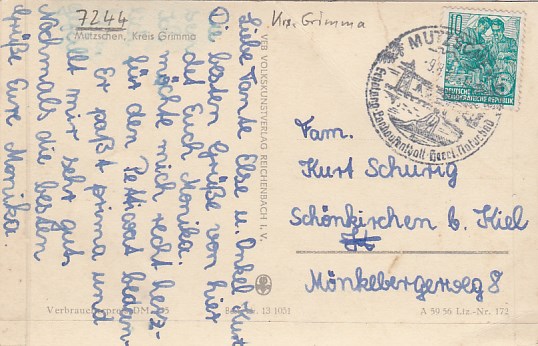 7244
Mutzschen, Kreis Grimma
Krs. Grimma
Liebe Tante Else u. Onkel Kurt
Die besten Grüße von hier
sendet Euch Monika.
möchte mich recht herz-
für den Petticoat bedan-
Er paßt prima und
gefällt mir sehr gut.
Nochmals die besten
Grüße Eure Monika.
VEB VOLKSKUNSTVERLAG REICHENBACH I. V.
MUTZSCHEN
10
DEUTSCHE
DEMOKRATISCHE REPUBLIK
Fam.
Kurt Schurig
Schönkirchen b. Kiel
Mönkebergerweg 8
Verbraucherpreis DM
Best.-Nr. 13 1051
A 59 56 Liz.-Nr. 172